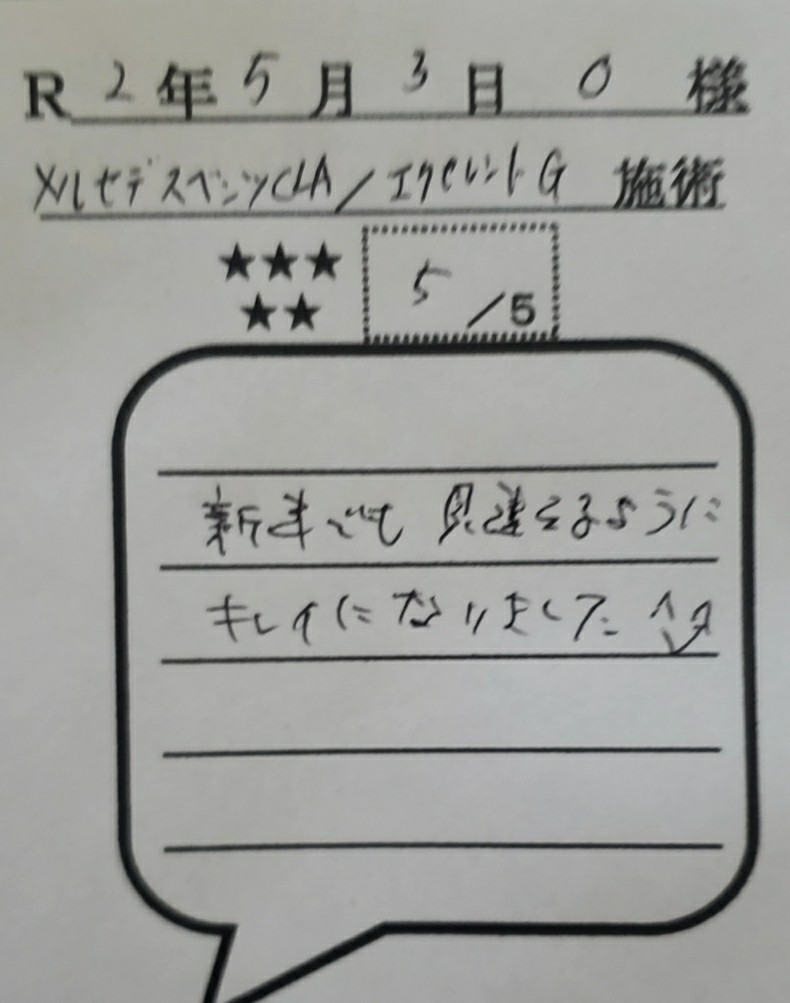 R 2年 5月 3日 O 様
メルセデスベンツCLA/エクセレントG 施術
★★★
★★
5/5
新車でも 見違えるように
キレイになりました ^_^